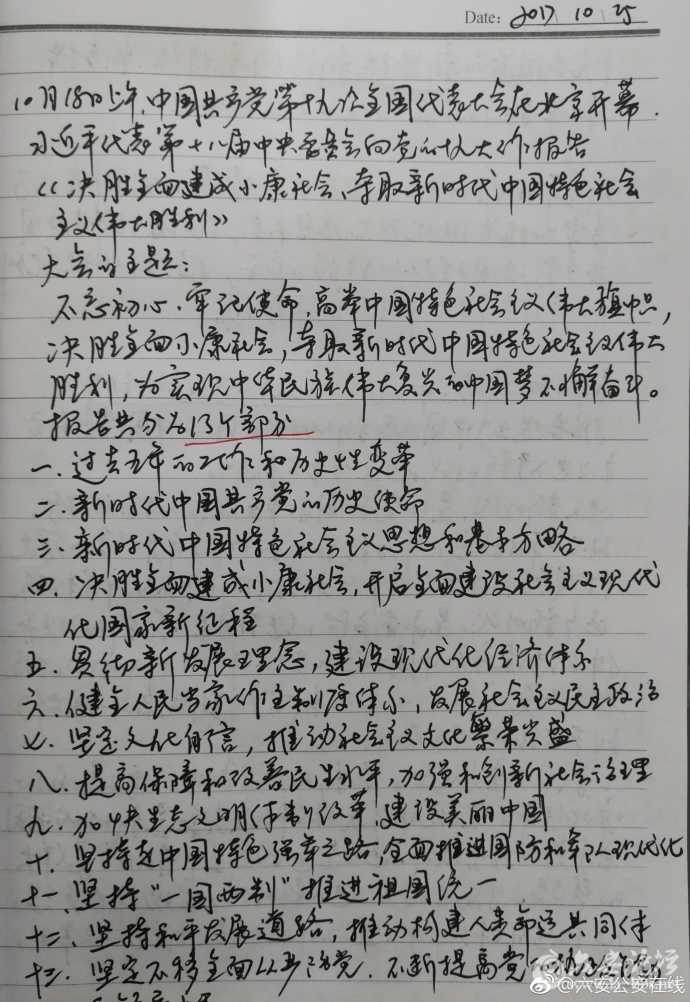 Date: 2017 10 25
10月18日上午,中国共产党第十九次全国代表大会在北京开幕.
习近平代表第十八届中央委员会向党的十九大作报告
《决胜全面建成小康社会、夺取新时代中国特色社会
主义伟大胜利》
大会的主题:
不忘初心、牢记使命,高举中国特色社会主义伟大旗帜,
决胜全面小康社会,夺取新时代中国特色社会主义伟大
胜利,为实现中华民族伟大复兴的中国梦不懈奋斗。
报告共分为13个部分
一.过去五年的工作和历史性变革
二.新时代中国共产党的历史使命
三.新时代中国特色社会主义思想和基本方略
四.决胜全面建成小康社会,开启全面建设社会主义现代
化国家新征程
五.贯彻新发展理念,建设现代化经济体系
六.健全人民当家作主制度体系,发展社会主义民主政治
七.坚定文化自信,推动社会主义文化繁荣兴盛
八.提高保障和改善民生水平,加强和创新社会治理
九.加快生态文明体制改革,建设美丽中国
十.坚持走中国特色强军之路,全面推进国防和军队现代化
十一.坚持“一国两制”推进祖国统一
十二.坚持和平发展道路,推动构建人类命运共同体
十三.坚定不移全面从严治党.不断提高党的执
@六安公安在线